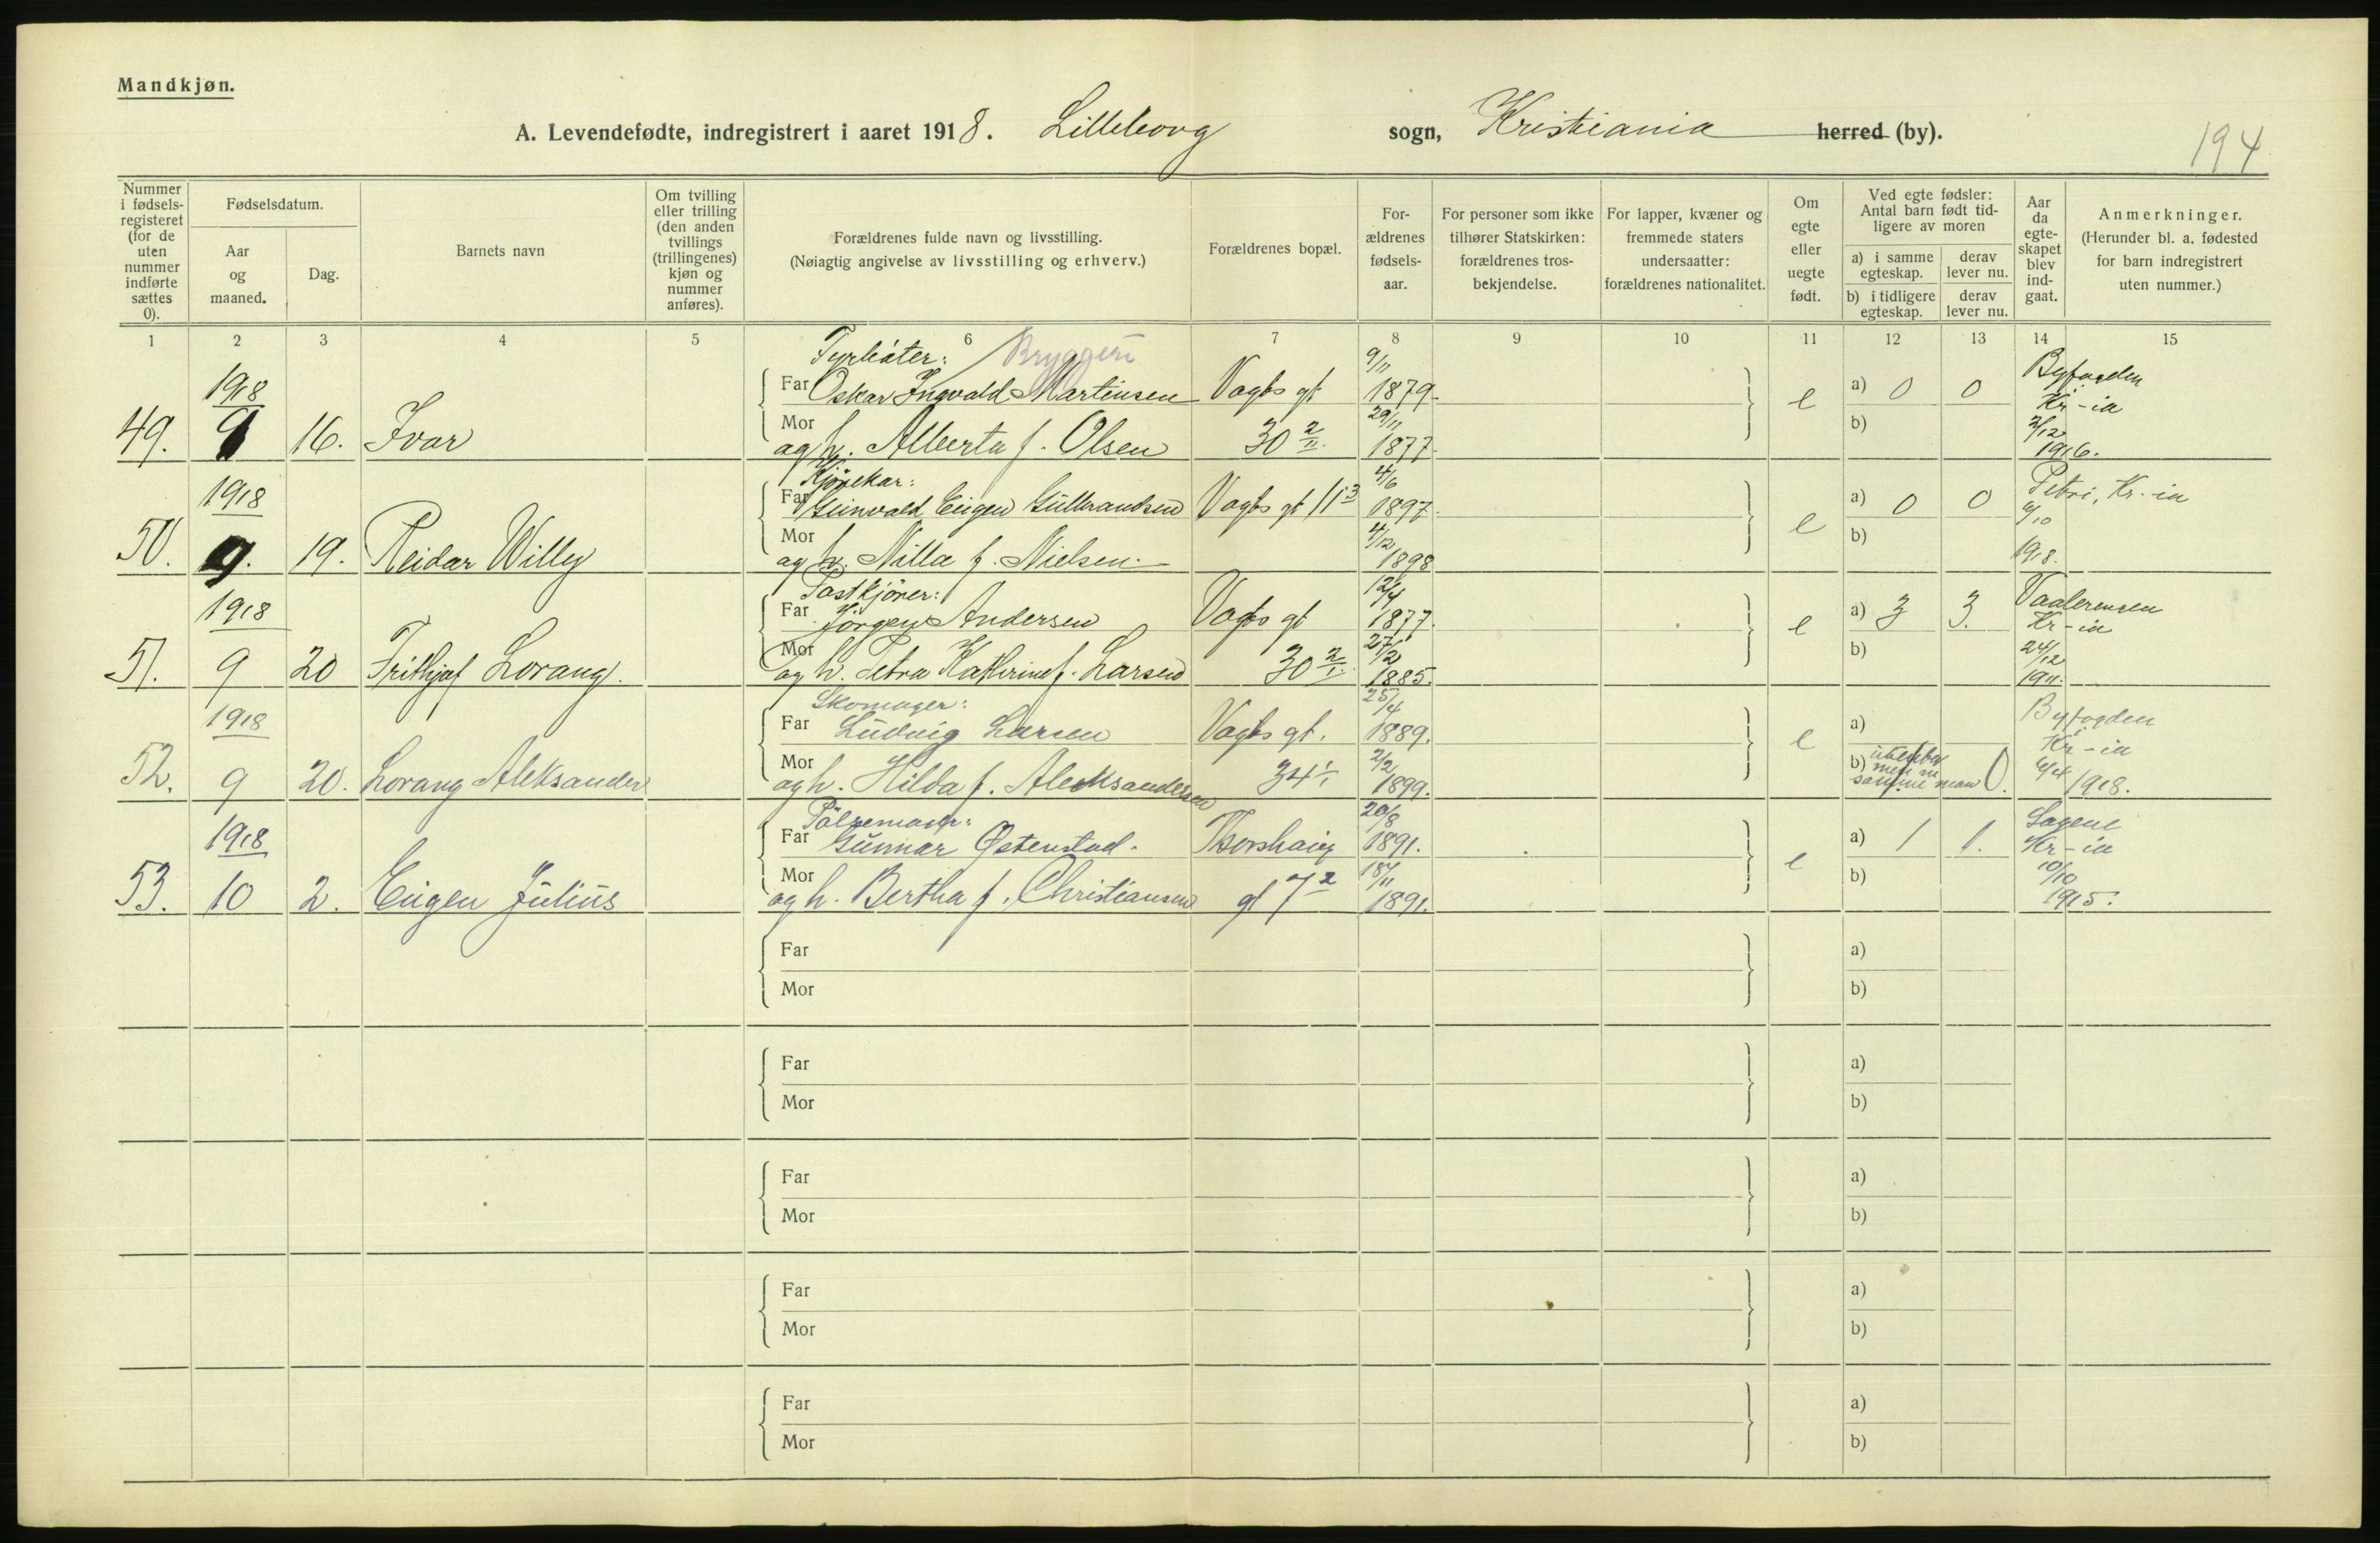 Mandkjøn.
A. Levendefødte, indregistrert i aaret 1918. Lilleborg sogn, Kristiania herred (by).
194
Nummer i fødsels-registeret (for de uten nummer indførte sættes 0).
Fødselsdatum.
Aar og maaned.
Dag.
Barnets navn
Om tvilling eller trilling (den anden tvillings (trillingenes) kjøn og nummer anføres).
Forældrenes fulde navn og livsstilling.
(Nøiagtig angivelse av livsstilling og erhverv.)
Forældrenes bopæl.
For-ældrenes fødsels-aar.
For personer som ikke tilhører Statskirken: forældrenes tros-bekjendelse.
For lapper, kvæner og fremmede staters undersaatter: forældrenes nationalitet.
Om egte eller uegte født.
Ved egte fødsler: Antal barn født tid-ligere av moren
a) i samme egteskap.
derav lever nu.
b) i tidligere egteskap.
derav lever nu.
Aar da egte-skapet blev ind-gaat.
Anmerkninger.
(Herunder bl. a. fødested for barn indregistrert uten nummer.)
1 2 3 4 5 6 7 8 9 10 11 12 13 14 15
Fyrbøter: Bryggeri
1918 Far Oskar Ingvald Martinsen Vogts gt 9/11 1879. e a) 0 0 Byfogden Kr-ia
49. 9 16. Ivar Mor og h. Alberta f. Olsen 30 2/II 29/11 1877. b) 2/12 1916.
Kjørekar:
1918 Far Gunvald Eugen Gulbrandsen Vogts gt 11 3 4/6 1897. e a) 0 0 Petri, Kr.ia
50. 9. 19. Reidar Willy Mor og h. Nilla f. Nielsen. 4/12 1898 b) 6/10 1918.
Postkjører:
1918 Far Jörgen Andersen Vogts gt 12/4 1877. e a) 3 3. Vaalerengen Kr-ia
51. 9 20 Frithjof Lorang. Mor og h. Petra Kathrine f. Larsen 30 2/I 27/2 1885. b) 24/12 1911.
Skomager:
1918 Far Ludvig Larsen Vogts gt. 25/4 1889. e a) Byfogden i Kr-ia
52. 9 20. Lorang Aleksander Mor og h. Hilda f. Aleksandersen 34 1/I 2/2 1899. b) samme man 0. 6/4 1918.
Pölsemaker:
1918 Far Gunnar Østenstad. Thorshaug 20/8 1891. e a) 1 1. Sagene Kr-ia
53. 10 2. Eugen Julius Mor og h. Bertha f. Christiansen gt 7 2 18/11 1891. b) 10/10 1915.
Far a)
Mor b)
Far a)
Mor b)
Far a)
Mor b)
Far a)
Mor b)
Far a)
Mor b)